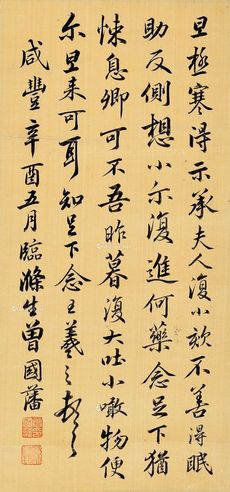 旦極寒得示承夫人復小欬不善得眠
助反側想小尔復進何藥念足下猶
悚息卿可不吾昨暮復大吐小噉物便
尔旦来可耳知足下念王羲之
咸豐辛酉五月臨滌生曾國藩